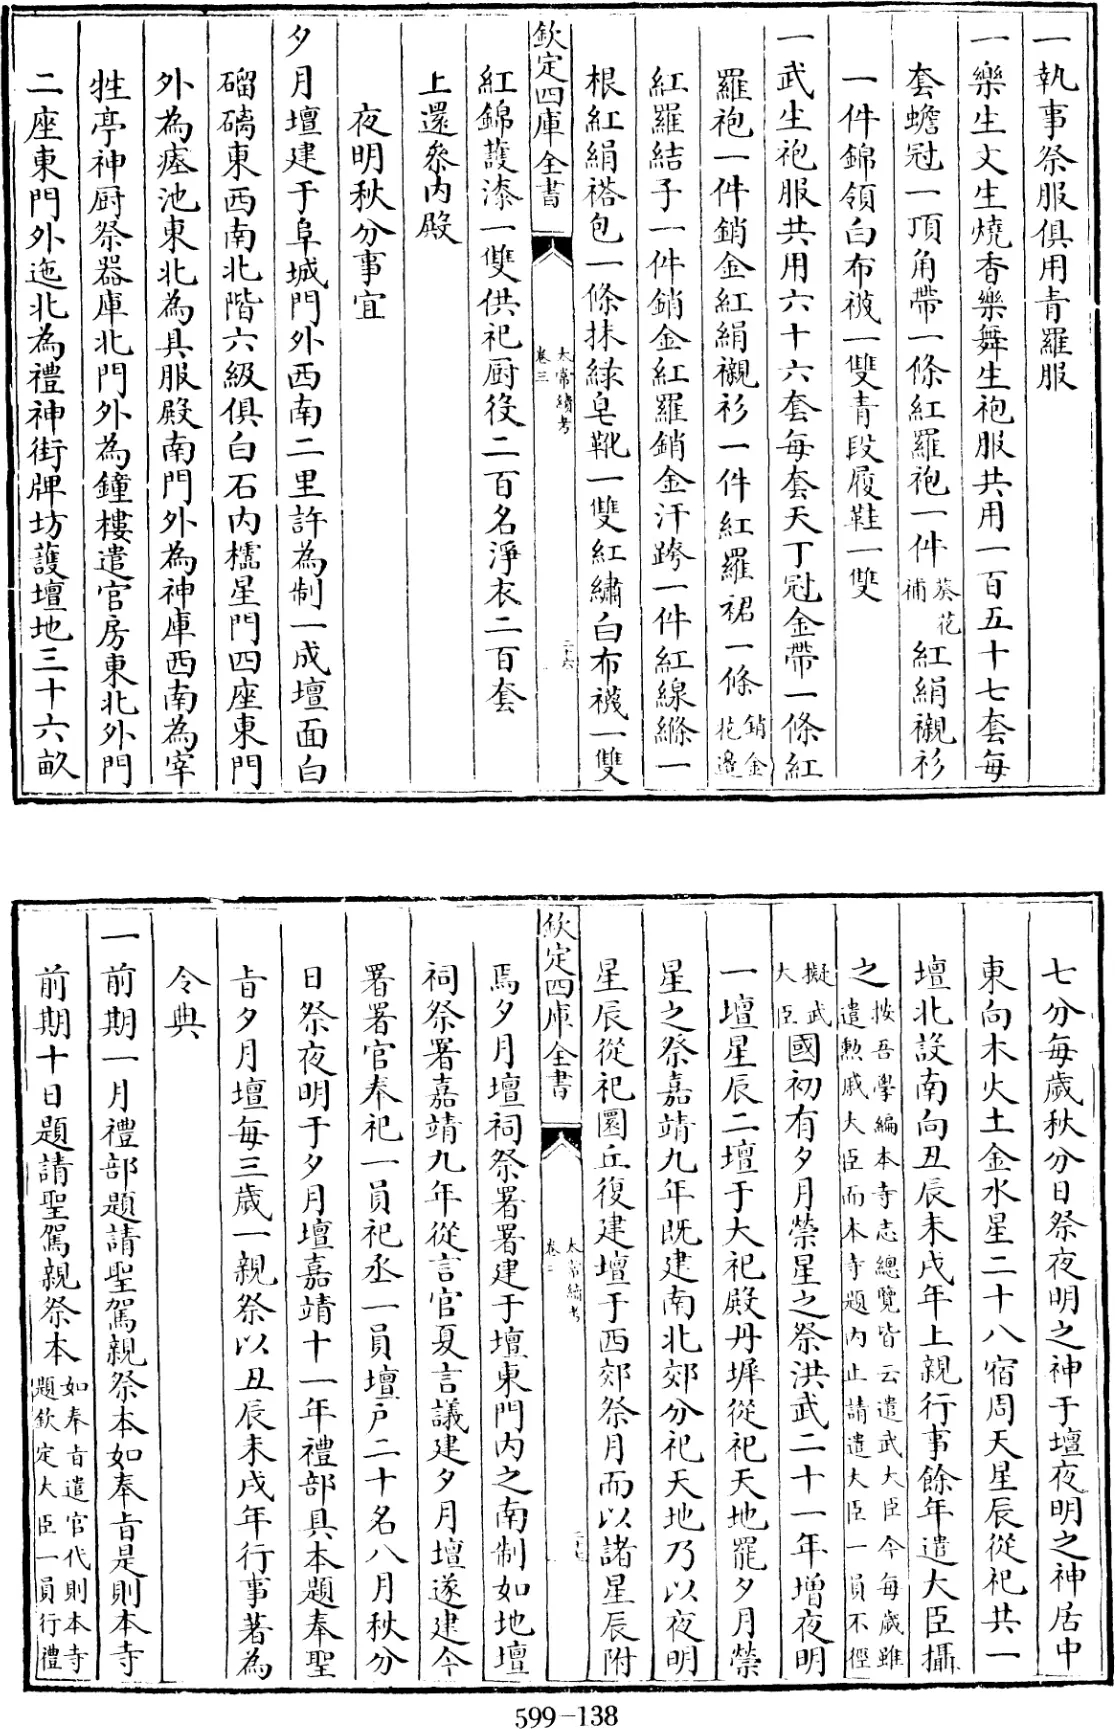 一執事祭服俱用青羅服
一樂生文生燒香樂舞生袍服共用一百五十七套每
套蟾冠一頂角帶一條紅羅袍一件葵花補紅絹襯衫
一件錦領白布襪一雙青段履鞋一雙
一武生袍服共用六十六套每套天丁冠金帶一條紅
羅袍一件銷金紅絹襯衫一件紅羅裙一條銷金花邊
紅羅結子一件銷金紅羅銷金汗跨一件紅線縧一
根紅絹褡包一條抹緑皂靴一雙紅繡白布襪一雙
欽定四庫全書
太常續考
卷三
二十六
紅錦䕶漆一雙供祀厨役二百名淨衣二百套
上還叅内殿
夜明秋分事宜
夕月壇建于阜城門外西南二里許為制一成壇面白
磂磚東西南北階六級俱白石内櫺星門四座東門
外為瘞池東北為具服殿南門外為神庫西南為宰
牲亭神厨祭器庫北門外為鐘樓遣官房東北外門
二座東門外迤北為禮神街牌坊䕶壇地三十六畝
七分每歲秋分日祭夜明之神于壇夜明之神居中
東向木火土金水星二十八宿周天星辰從祀共一
壇北設南向丑辰未戌年上親行事餘年遣大臣攝
之按吾學編本寺志總覽皆云遣武大臣今每歲雖遣勲戚大臣而本寺題内止請遣大臣一員不徑
擬武大臣國初有夕月禜星之祭洪武二十一年增夜明
一壇星辰二壇于大祀殿丹墀從祀天地罷夕月禜
星之祭嘉靖九年既建南北郊分祀天地乃以夜明
星辰從祀圜丘復建壇于西郊祭月而以諸星辰附
欽定四庫全書
太常續考
卷三
焉夕月壇祠祭署署建于壇東門内之南制如地壇
祠祭署嘉靖九年從言官夏言議建夕月壇遂建今
署署官奉祀一員祀丞一員壇户二十名八月秋分
日祭夜明于夕月壇嘉靖十一年禮部具本題奉聖
旨夕月壇每三歲一親祭以丑辰未戌年行事著為
令典
一前期一月禮部題請聖駕親祭本如奉旨是則本寺
前期十日題請聖駕親祭本如奉旨遣官代則本寺題欽定大臣一員行禮
599-138